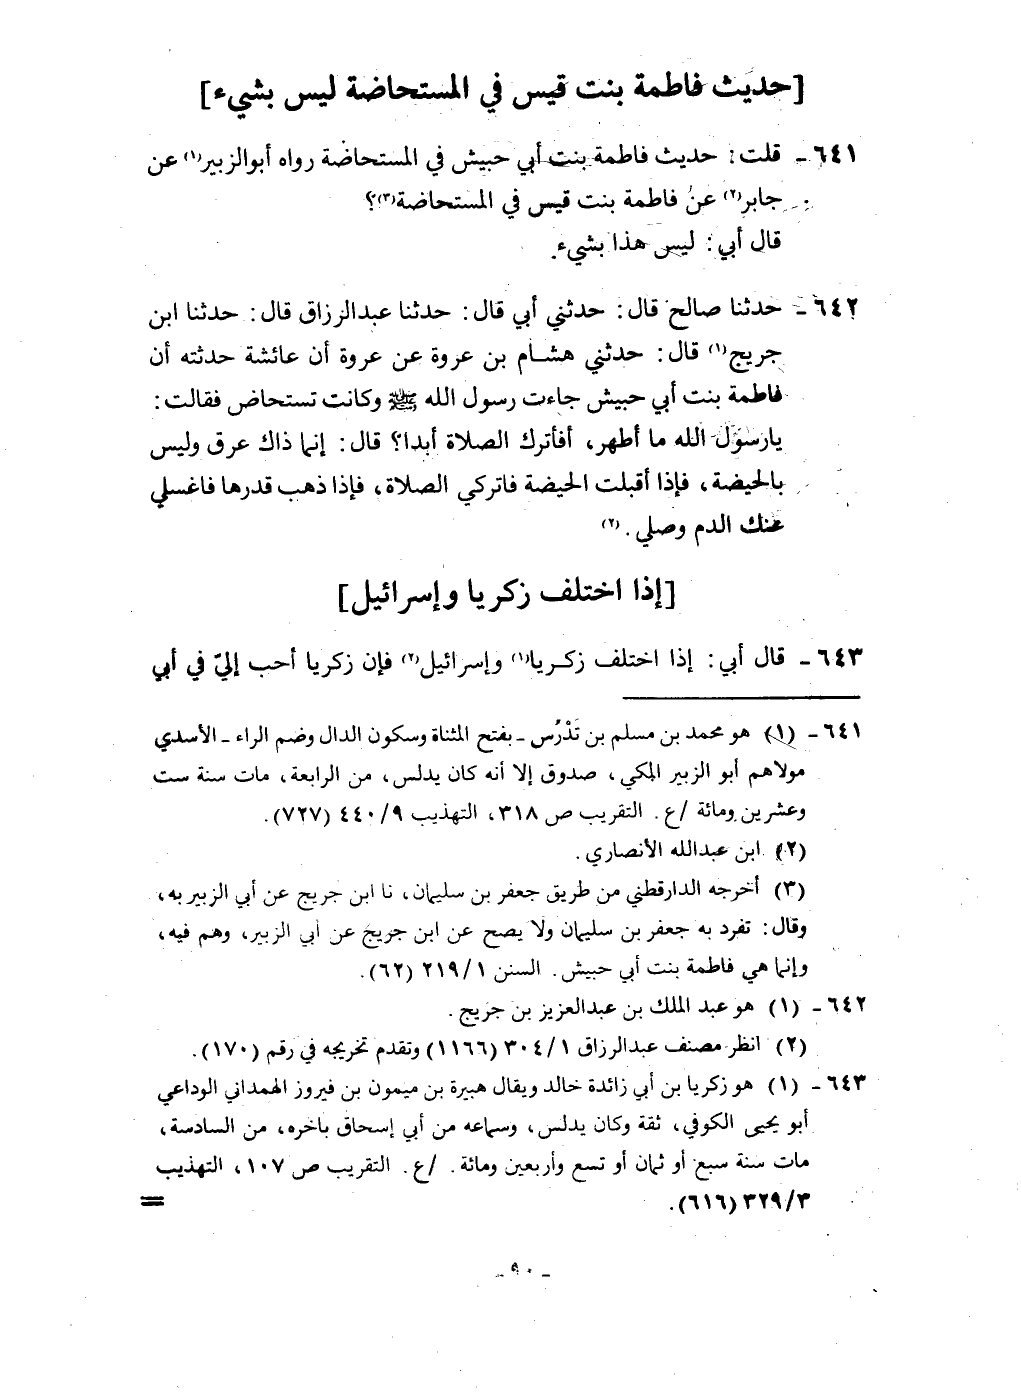 [حديث فاطمة بنت قيس في المستحاضة ليس بشيء]
٦٤١ـ قلت: حديث فاطمة بنت أبي حبيش في المستحاضة رواه أبوالزبير(١) عن
جابر(٢) عن فاطمة بنت قيس في المستحاضة(٣)؟
قال أبي: ليس هذا بشيء.
٦٤٢ـ حدثنا صالح قال: حدثني أبي قال: حدثنا عبدالرزاق قال: حدثنا ابن
جريج(١) قال: حدثني هشام بن عروة عن عروة أن عائشة حدثته أن
فاطمة بنت أبي حبيش جاءت رسول الله ﷺ وكانت تستحاض فقالت:
يارسول الله ما أطهر، أفأترك الصلاة أبدا؟ قال: إنما ذاك عرق وليس
بالحيضة، فإذا أقبلت الحيضة فاتركي الصلاة، فإذا ذهب قدرها فاغسلي
عنك الدم وصلي.(٢)
[إذا اختلف زكريا وإسرائيل]
٦٤٣ـ قال أبي: إذا اختلف زكريا(١) وإسرائيل(٢) فإن زكريا أحب إليّ في أبي
٦٤١ـ (١) هو محمد بن مسلم بن تَدْرُس ـ بفتح المثناة وسكون الدال وضم الراء ـ الأسدي
مولاهم أبو الزبير المكي، صدوق إلا أنه كان يدلس، من الرابعة، مات سنة ست
وعشرين ومائة /ع. التقريب ص ٣١٨، التهذيب ٤٤٠/٩ (٧٢٧).
(٢) ابن عبدالله الأنصاري.
(٣) أخرجه الدارقطني من طريق جعفر بن سليمان، نا ابن جريج عن أبي الزبير به،
وقال: تفرد به جعفر بن سليمان ولا يصح عن ابن جريج عن أبي الزبير، وهم فيه،
وإنما هي فاطمة بنت أبي حبيش. السنن ٢١٩/١ (٦٢).
٦٤٢ـ (١) هو عبد الملك بن عبدالعزيز بن جريج.
(٢) انظر مصنف عبدالرزاق ٣٠٤/١ (١١٦٦) وتقدم تخريجه في رقم (١٧٠).
٦٤٣ـ (١) هو زكريا بن أبي زائدة خالد ويقال هبيرة بن ميمون بن فيروز الهمداني الوداعي
أبو يحيى الكوفي، ثقة وكان يدلس، وسماعه من أبي إسحاق بأخره، من السادسة،
مات سنة سبع أو ثمان أو تسع وأربعين ومائة. /ع. التقريب ص ١٠٧، التهذيب
٣٢٩/٣ (٦١٦). =
ـ ٩٠ ـ